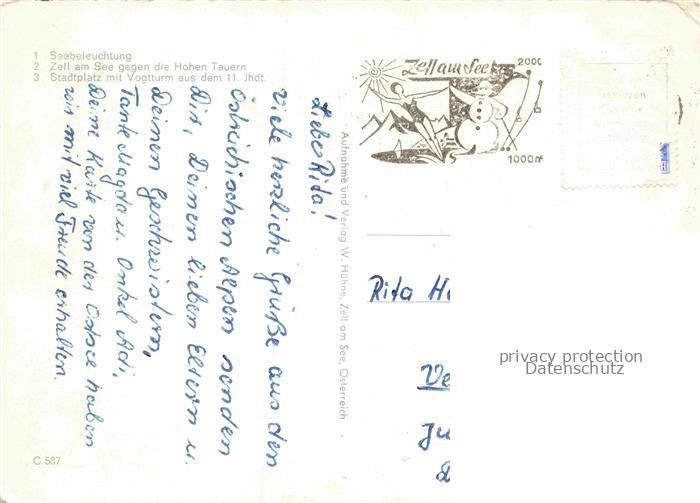 1 Seebeleuchtung
2 Zell am See gegen die Hohen Tauern
3 Stadtplatz mit Vogtturm aus dem 11. Jhdt.
Liebe Rita!
Viele herzliche Grüße aus den
Östreichischen Alpen senden
Dir, Deinen lieben Eltern u.
Deinen Geschwistern,
Tante Magda u. Onkel Adi.
Deine Karte von der Ostsee haben
wir mit viel Freude erhalten.
C 587
Aufnahme und Verlag W. Hühne, Zell am See, Österreich
Zell am See
2000
1000m
Rita
privacy protection
Datenschutz